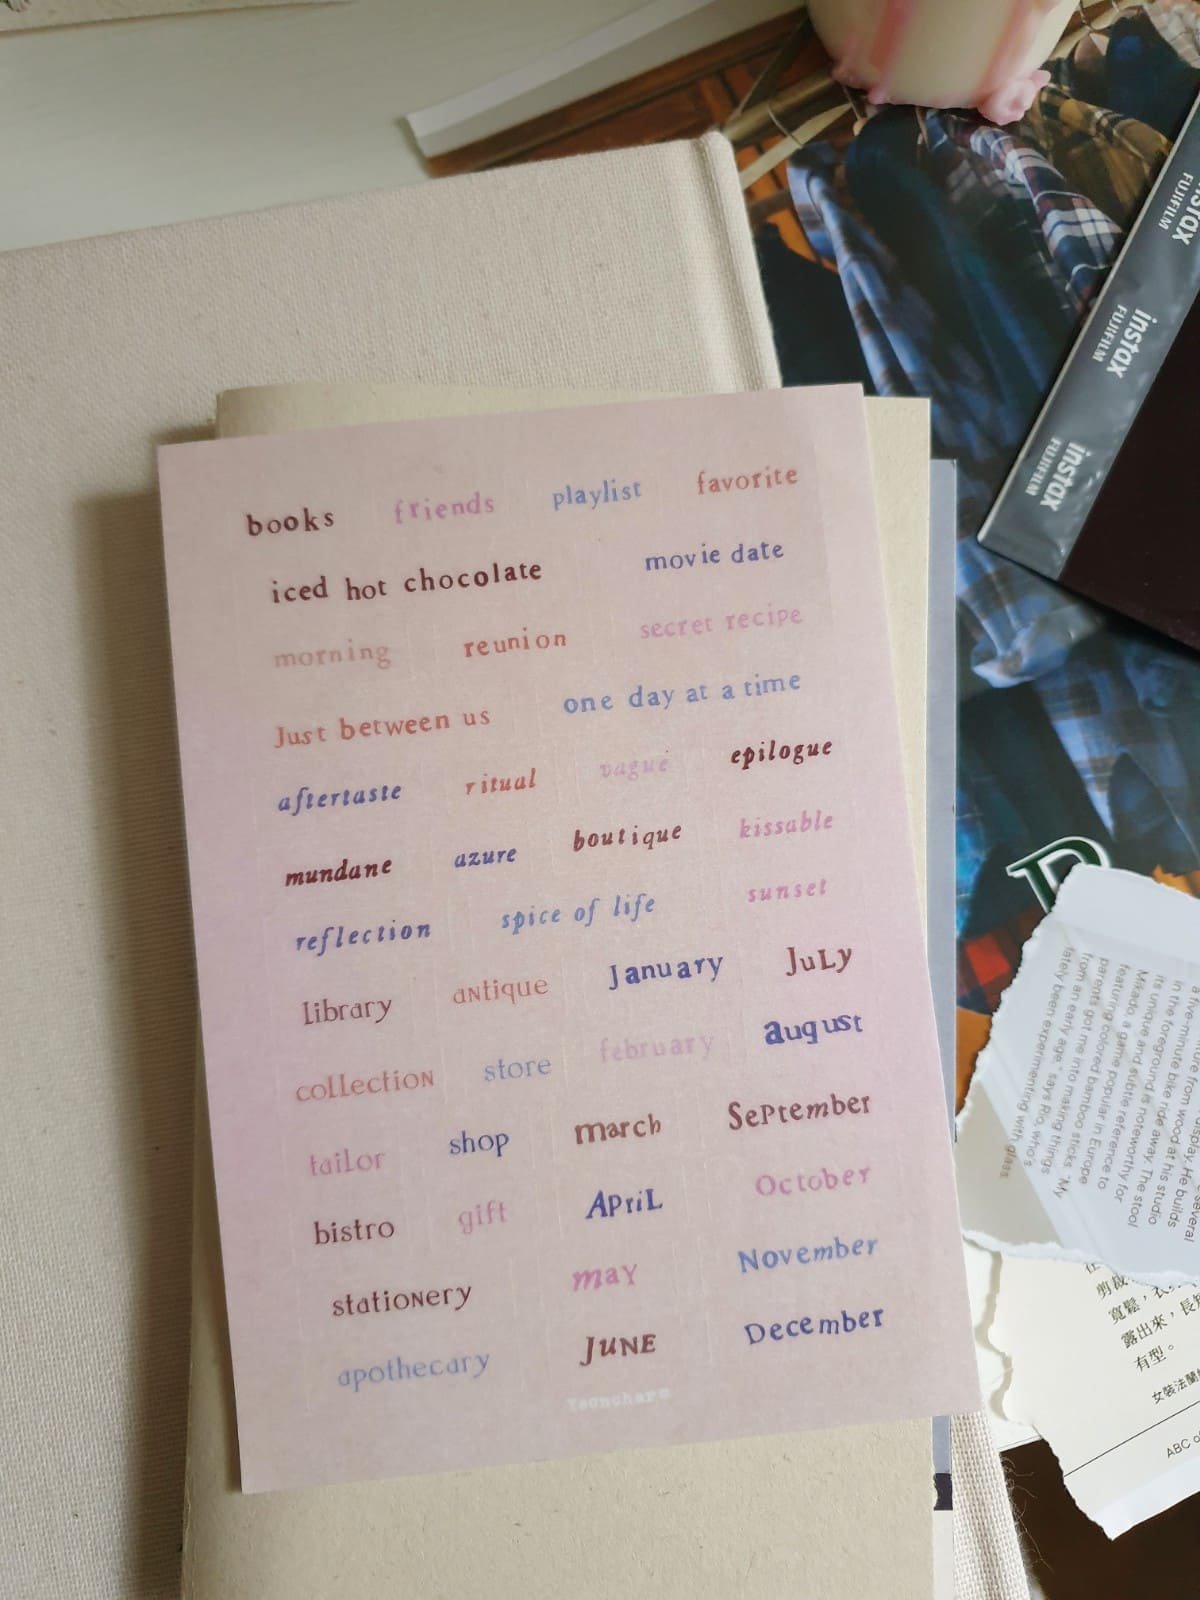 books friends playlist favorite
iced hot chocolate movie date
morning reunion secret recipe
Just between us one day at a time
aftertaste ritual vague epilogue
mundane azure boutique kissable
reflection spice of life sunset
library aNtique January JuLy
collectioN store february august
tailor shop march September
bistro gift APriL October
statioNery maY November
apothecary JuNE December
instax
FUJIFILM
instax
FUJIFILM
instax
FUJIFILM
from wood at his studio
a five-minute bike ride away. The stool
in the foreground is noteworthy for
its unique and subtle reference to
Mikado, a game popular in Europe
featuring colored bamboo sticks. "My
parents got me into making things
from an early age," says Rio, who's
lately been experimenting with glass.
寬鬆，衣
露出來，長
有型。
女裝法蘭
ABC